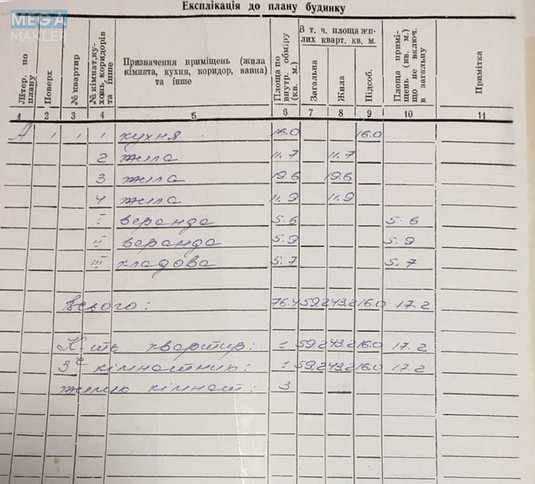 MEGA
MAKLER
Експлікація до плану будинку
Літер. по плану
Поверх
№ квартир
№ кімнат, кухонь, коридорів та інше
Призначення приміщень (жила кімната, кухня, коридор, ванна) та інше
Площа по внутр. обміру (кв. м.)
В т. ч. площа жилих кварт. кв. м.
Загальна
Жила
Підсоб.
Площа приміщень (кв. м.) що не включ. в загальну
Примітка
1 2 3 4 5 6 7 8 9 10 11
А 1 1 1 кухня 16.0 16.0
2 жила 11.7 11.7
3 жила 19.6 19.6
4 жила 11.9 11.9
I веранда 5.6 5.6
II веранда 5.9 5.9
III кладова 5.7 5.7
Всього: 76.4 59.2 43.2 16.0 17.2
К-ть квартир: 1 59.2 43.2 16.0 17.2
3х кімнатних: 1 59.2 43.2 16.0 17.2
жилих кімнат: 3